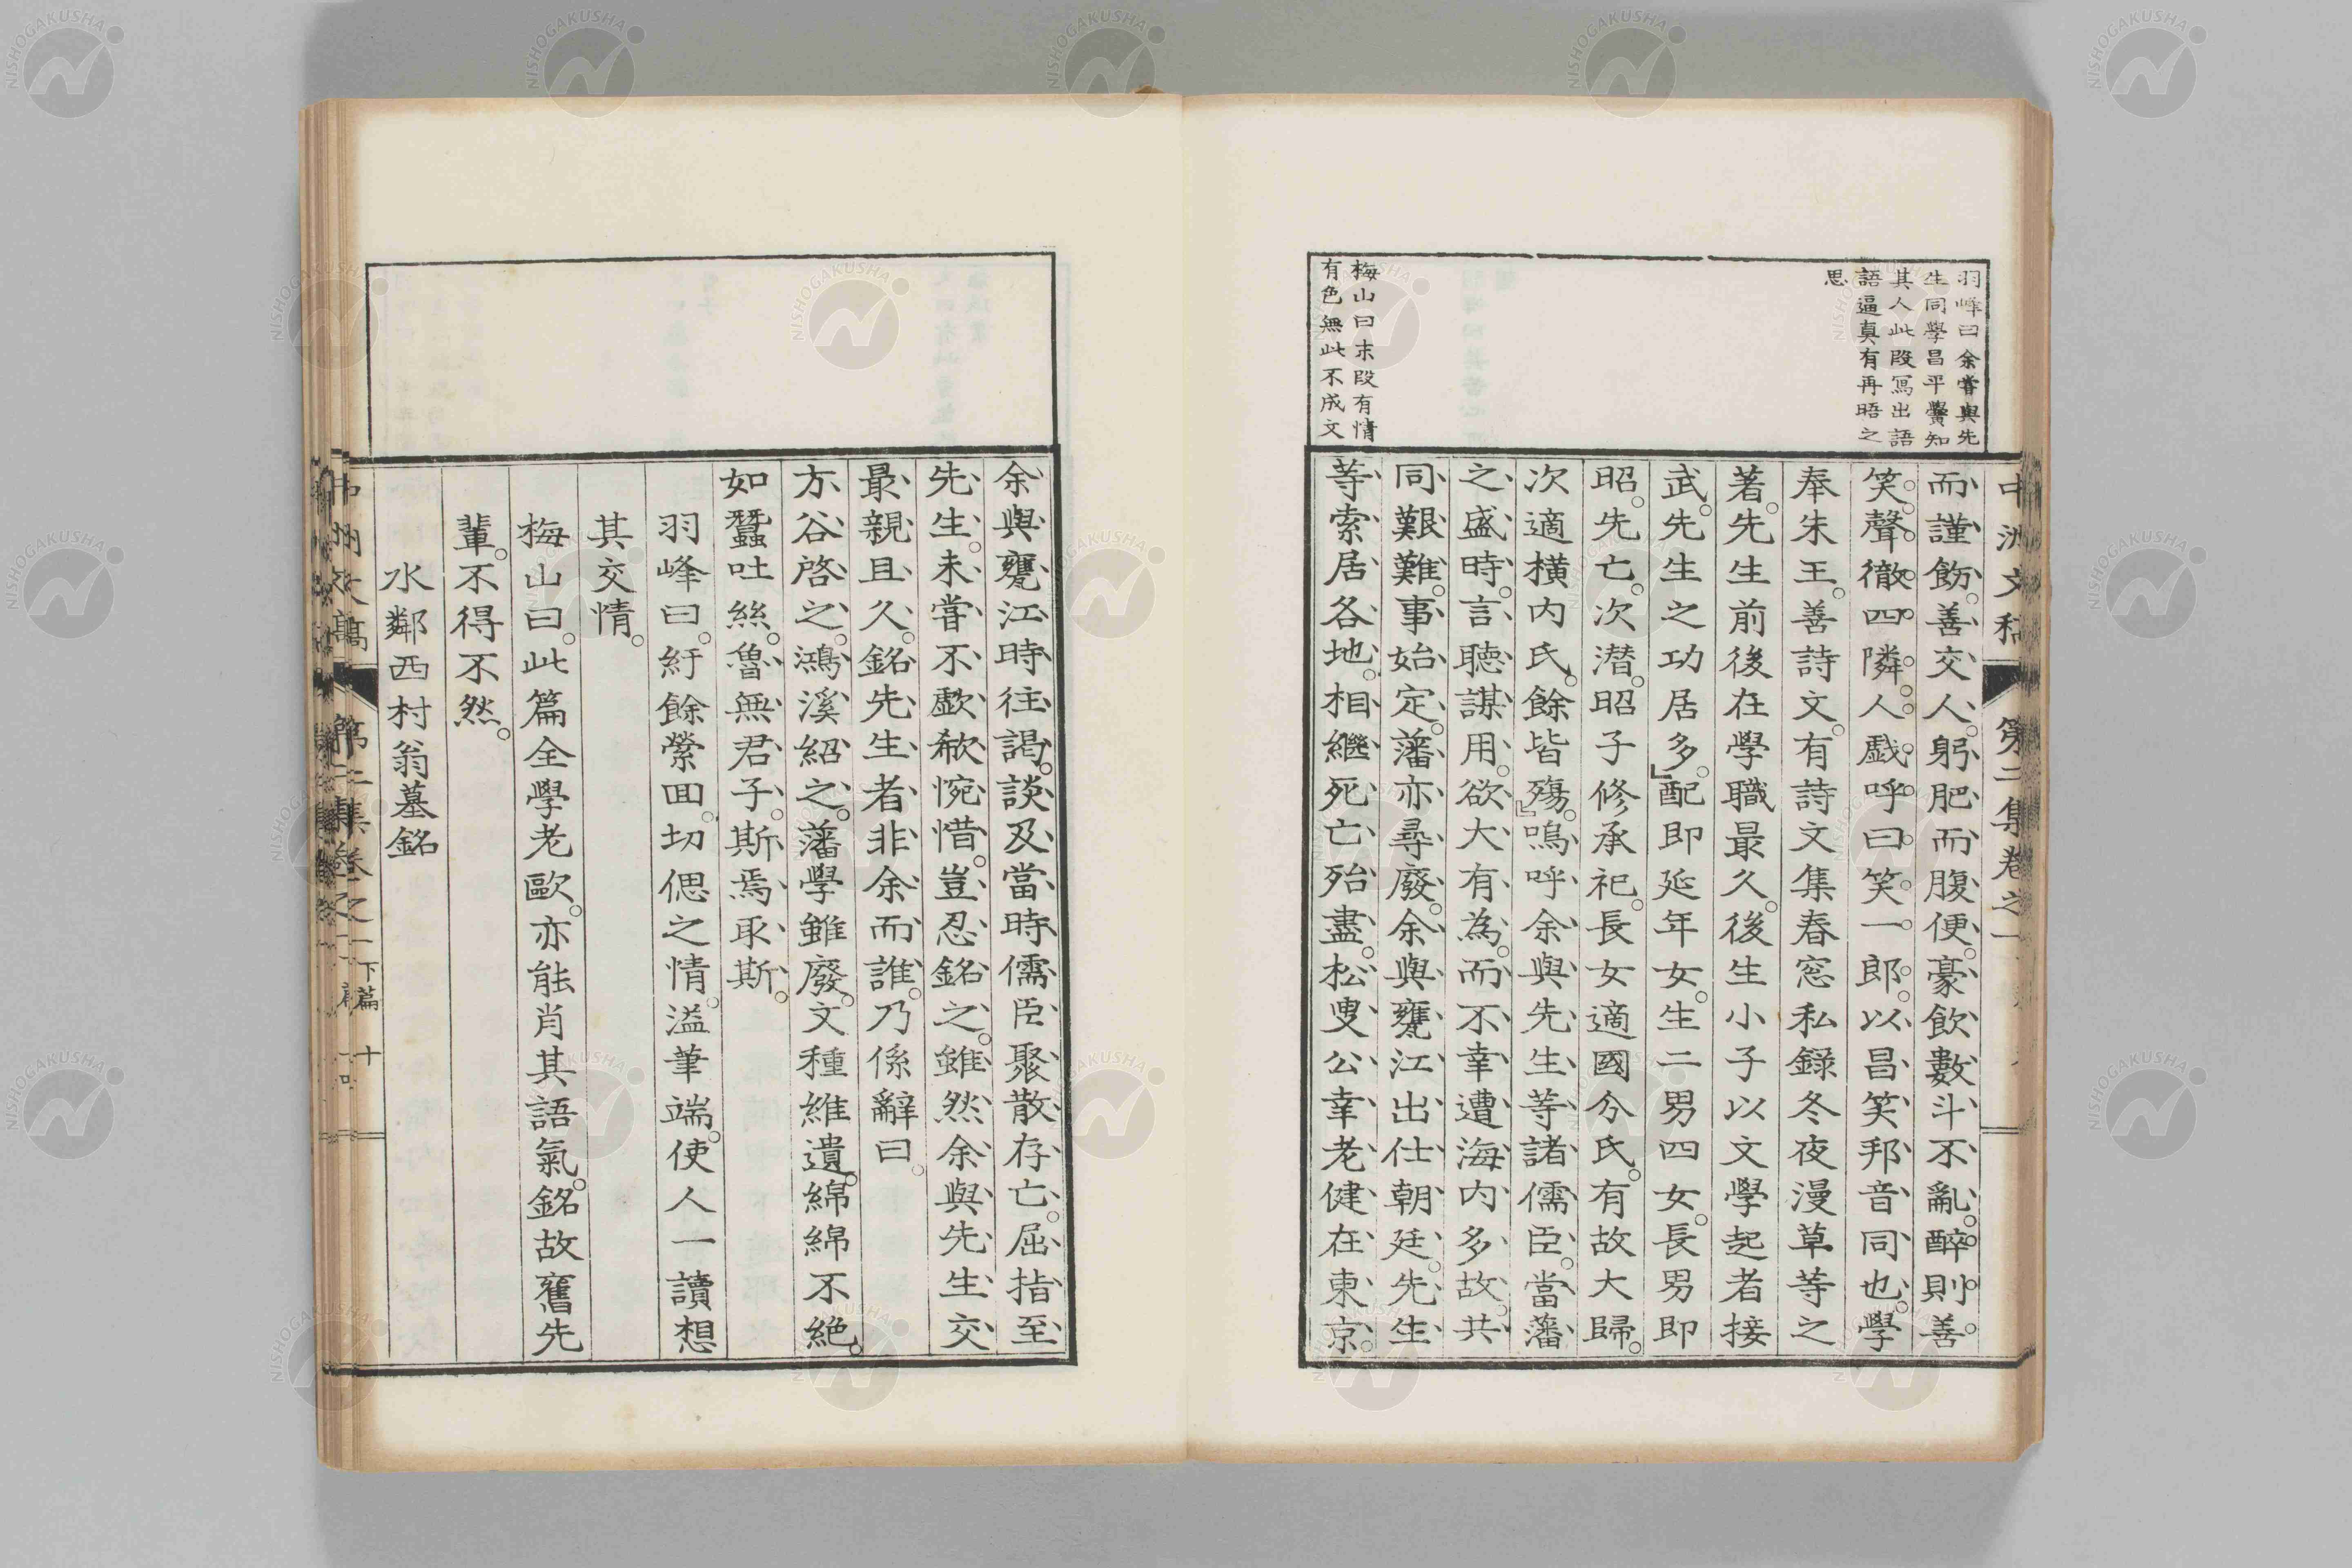 中洲文稿 第二集卷之一
羽峰曰余嘗與先
生同學昌平黌知
其人此段寫出語
語逼真有再晤之
思
而謹飭。善交人。躬肥而腹便。豪飲數斗不亂。醉則善
笑。聲徹四隣。人戯呼曰笑一郎。以昌笑邦音同也。學
奉朱王。善詩文。有詩文集春窓私録冬夜漫草等之
著。先生前後在學職最久。後生小子以文學起者接
武。先生之功居多。』配即延年女。生二男四女。長男即
昭。先亡。次潜。昭子修承祀。長女適國分氏。有故大歸。
次適横内氏。餘皆殤。』嗚呼余與先生等諸儒臣。當藩
之盛時。言聽謀用。欲大有為。而不幸遭海内多故。共
同艱難。事始定。藩亦尋廢。余與甕江出仕朝廷。先生
等索居各地。相繼死亡殆盡。松叟公幸老健在東京。
梅山曰末段有情
有色無此不成文
余與甕江時往謁。談及當時儒臣聚散存亡。屈指至
先生。未嘗不歔欷惋惜。豈忍銘之。雖然余與先生交
最親且久。銘先生者非余而誰。乃係辭曰。
方谷啓之。鴻溪紹之。藩學雖廢。文種維遺。綿綿不絶。
如蠶吐絲。魯無君子。斯焉取斯。
羽峰曰。紆餘縈回。切偲之情。溢筆端。使人一讀想
其交情。
梅山曰。此篇全學老歐。亦能肖其語氣。銘故舊先
輩。不得不然。
水鄰西村翁墓銘
中洲文稿 第二集卷之一 下篇 十